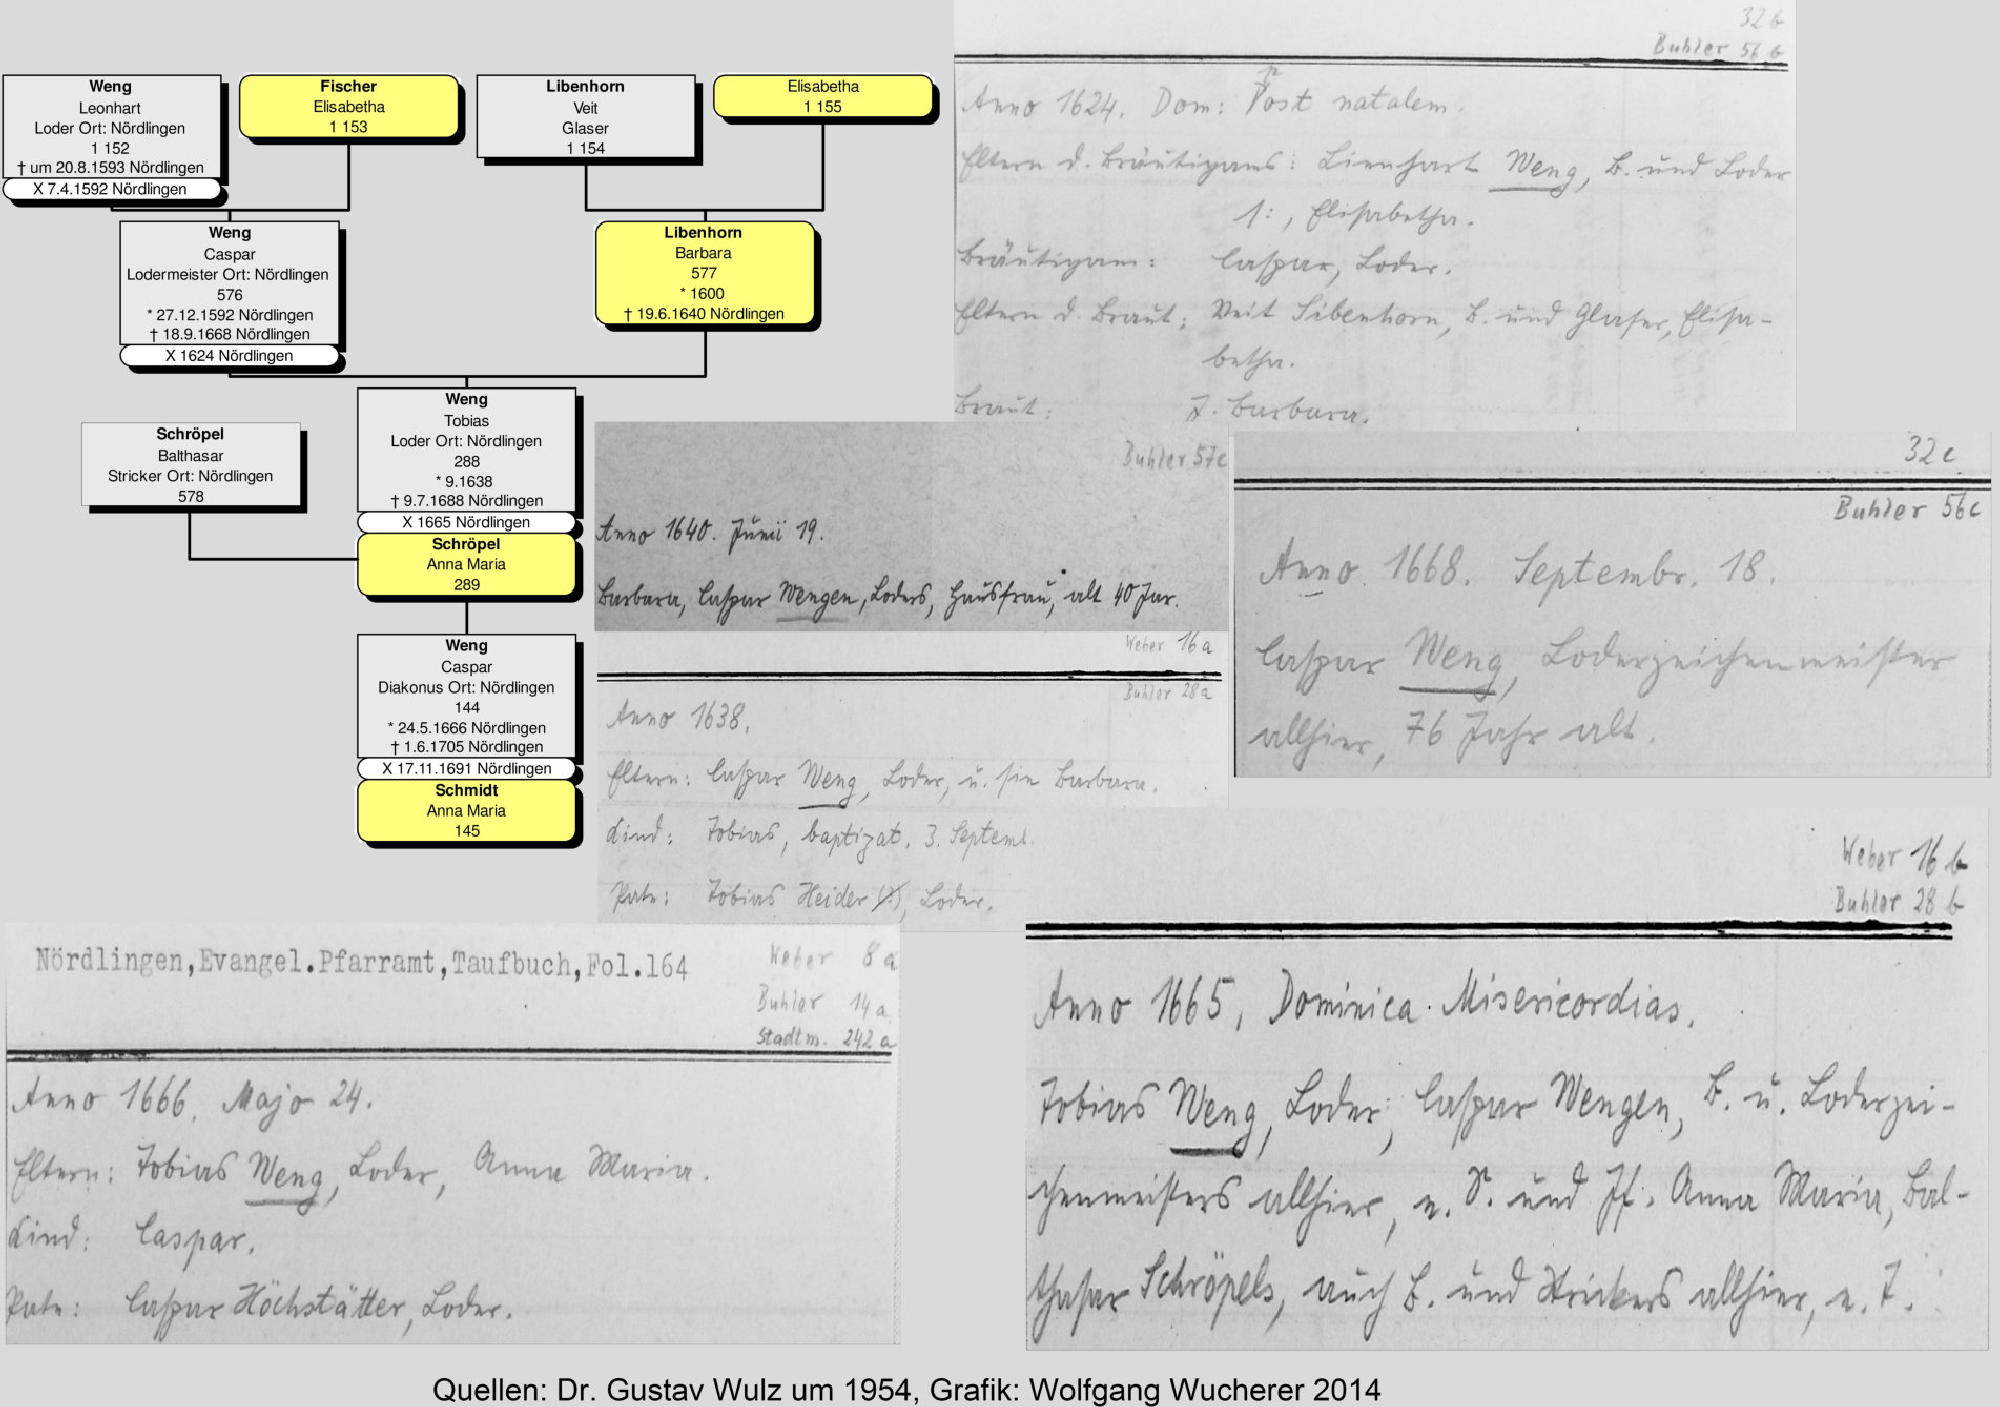 Weng
Leonhart
Loder Ort: Nördlingen
1 152
† um 20.8.1593 Nördlingen
X 7.4.1592 Nördlingen
Fischer
Elisabetha
1 153
Libenhorn
Veit
Glaser
1 154
Elisabetha
1 155
Weng
Caspar
Lodermeister Ort: Nördlingen
576
* 27.12.1592 Nördlingen
† 18.9.1668 Nördlingen
X 1624 Nördlingen
Libenhorn
Barbara
577
* 1600
† 19.6.1640 Nördlingen
Weng
Tobias
Loder Ort: Nördlingen
288
* 9.1638
† 9.7.1688 Nördlingen
X 1665 Nördlingen
Schröpel
Anna Maria
289
Schröpel
Balthasar
Stricker Ort: Nördlingen
578
Weng
Caspar
Diakonus Ort: Nördlingen
144
* 24.5.1666 Nördlingen
† 1.6.1705 Nördlingen
X 17.11.1691 Nördlingen
Schmidt
Anna Maria
145
32 b
Buhler 56 b
Anno 1624. Dom: Post natalem.
Eltern d. Bräutigams: Lienhart Weng, B. und Loder
Elisabetha.
Bräutigam: Caspar, Loder.
Eltern d. Braut: Veit Libenhorn, B. und Glaser, Elisa-
betha.
Braut: T. Barbara.
Buhler 57c
Anno 1640. Junii 19.
Barbara, Caspar Wengen, Loders, Hausfrau, alt 40 Jar.
32 c
Buhler 56c
Anno 1668. Septembr. 18.
Caspar Weng, Loderzeichenmeister
allhier, 76 Jahr alt.
Weber 16 a
Buhler 28 a
Anno 1638.
Eltern: Caspar Weng, Loder, u. sin Barbara.
Kind: Tobias, baptizat. 3. Septemb.
Pate: Tobias Heider (?), Loder.
Weber 16 b
Buhler 28 b
Anno 1665, Dominica Misericordias.
Tobias Weng, Loder, Caspar Wengen, B. u. Loderzei-
chenmeisters allhier, e. S. und Jf. Anna Maria, Bal-
thasar Schröpels, auch B. und Strickers allhier, e. T.
Nördlingen,Evangel.Pfarramt,Taufbuch,Fol.164
Weber 8 a
Buhler 14 a
Stadtm. 242 a
Anno 1666, Majo 24.
Eltern: Tobias Weng, Loder, Anna Maria.
Kind: Caspar.
Pate: Caspar Höchstätter, Loder.
Quellen: Dr. Gustav Wulz um 1954, Grafik: Wolfgang Wucherer 2014